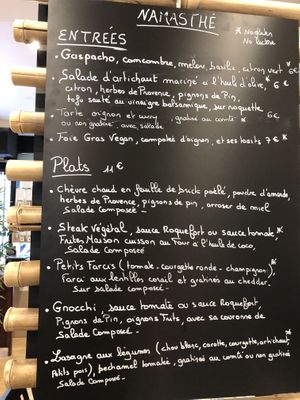 NAMASTHÉ
* No gluten
No lactose
ENTRÉES
• Gaspacho, concombre, melon, basilic, citron vert * 6€
• Salade d'artichaut mariné à l'huile d'olive, * 6€
citron, herbes de Provence, pignons de Pin,
tofu sauté au vinaigre balsamique, sur roquette
• Tarte oignon et curry, gratiné au comté * 6€
ou non gratiné, avec salade
• Foie Gras Vegan, compotée d'oignon, et ses toasts 7€ *
Plats 11€
• Chèvre chaud en feuille de brick poêlé, poudre d'amande,
herbes de Provence, pignons de pin, arroser de miel
Salade Composée -
• Steak Végétal, sauce Roquefort ou sauce tomate, *
Frites Maison cuisson au Four à l'huile de coco,
Salade Composée
• Petits Farcis (tomate - courgette ronde - champignon), *
Farci aux lentilles corail et gratinés au cheddar.
Sur salade composée -
• Gnocchi, sauce tomate ou sauce Roquefort,
Pignons de Pin, oignons frits, avec sa couronne de
Salade Composé -
• Lasagne aux légumes (chou blanc, carotte, courgette, artichaut, *
Petits pois), béchamel tomatée, gratinés au comté ou non gratinés
Salade Composé -